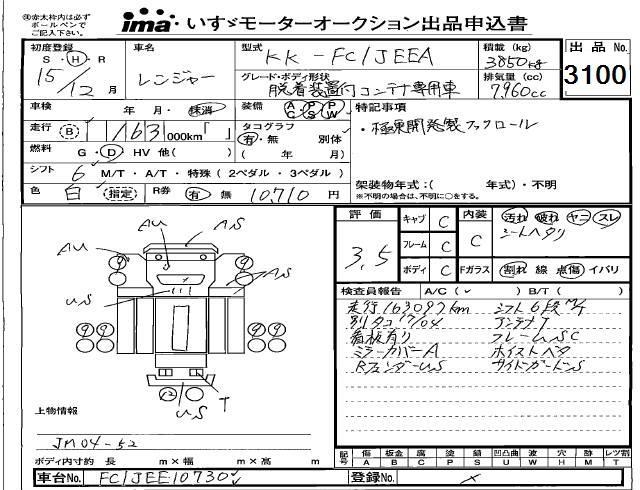 ㊟赤太枠内は必ず
ボールペンで
ご記入下さい。
ima いすゞモーターオークション出品申込書
初度登録 S・H・R 15/12 月
車名 レンジャー
型式 KK-FC1JEEA
積載 (kg) 3850kg
グレード・ボディ形状 脱着装置付コンテナ専用車
排気量 (cc) 7,960cc
出品 No. 3100
車検 年 月・抹消
装備 AC PS PW
特記事項
・極東開発製フックロール
走行 B 163 000km「 」
タコグラフ 有・無 別体 ( 年 月)
燃料 G・D HV 他( )
シフト 6 M/T・A/T・特殊(2ペダル・3ペダル)
色 白 指定 R券 有 無 10,710 円
架装物年式:( 年式)・不明
※不明の場合は、不明に○をする。
評価 3.5
キャブ C
フレーム C
ボディ C
内装 C
汚れ 破れ ヤニ スレ
シートヘタリ
Fガラス 割れ 線 点傷 イバリ
検査員報告 A/C(✓) B/T( )
走行163097km シフト6段M/T
別タコ17/04 アンテナT
看板有り フレームSC
ミラーカバーA ホイストベタ
RフェンダーUS サイドガードンS
AU AS
AU AS
US
9 9
9 9
12 US T
上物情報
JM04-52
ボディ内寸約 長 m×幅 m×高 m
記号 傷A 板金B 腐C 塗P 錆S 凹凸曲U 波W 穴H 跡M レツ割T
車台No. FC1JEE10730
登録No.